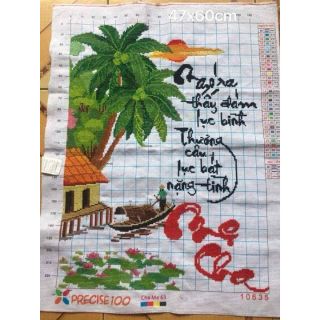 47x60cm
Ngó ra
thấy đám
lục bình
Thương
câu
lục bát
nặng tình
Mẹ
Cha
PRECISE100
Cha Mẹ 63
10635